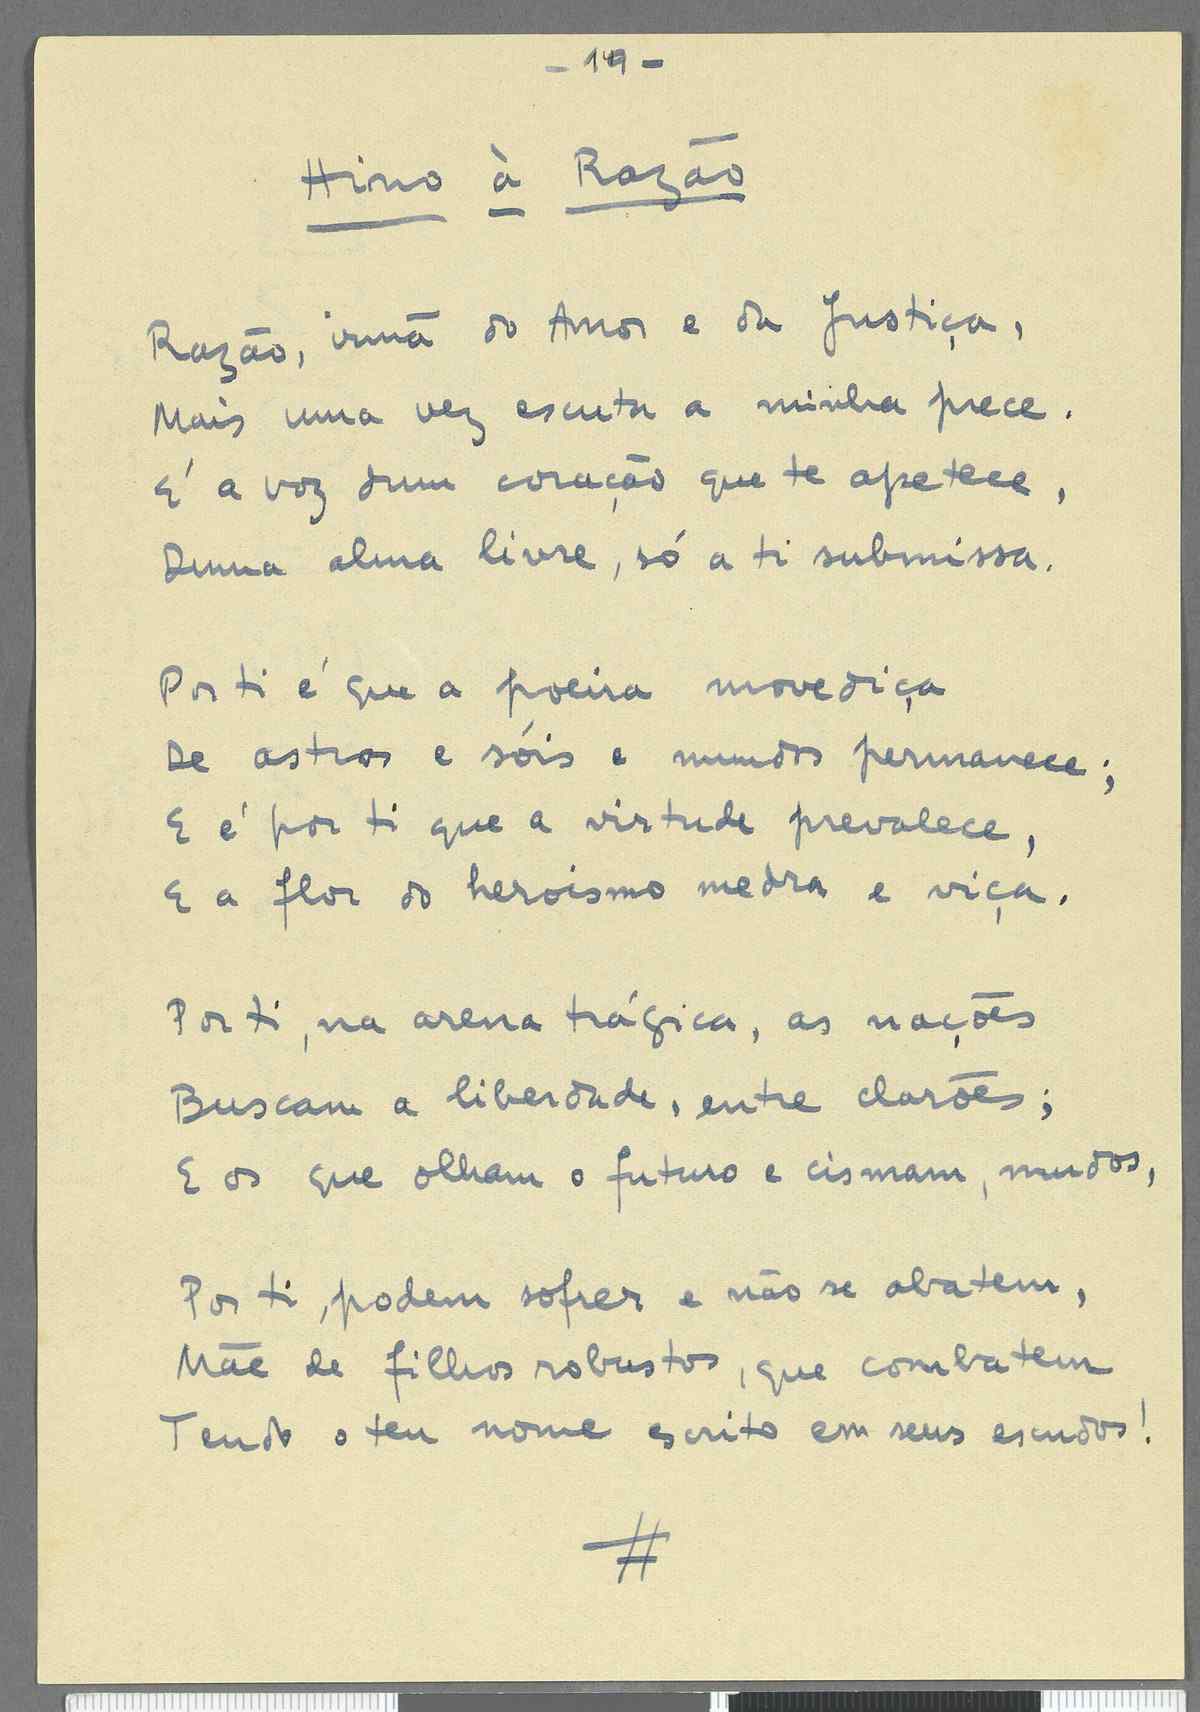 - 149 -
Hino à Razão
Razão, irmã do Amor e da Justiça,
Mais uma vez escuta a minha prece.
É a voz dum coração que te apetece,
Duma alma livre, só a ti submissa.
Por ti é que a poeira movediça
De astros e sóis e mundos permanece;
E é por ti que a virtude prevalece,
E a flor do heroismo medra e viça.
Por ti, na arena trágica, as nações
Buscam a liberdade, entre clarões;
E os que olham o futuro e cismam, mudos,
Por ti, podem sofrer e não se abatem,
Mãe de filhos robustos, que combatem
Tendo o teu nome escrito em seus escudos!